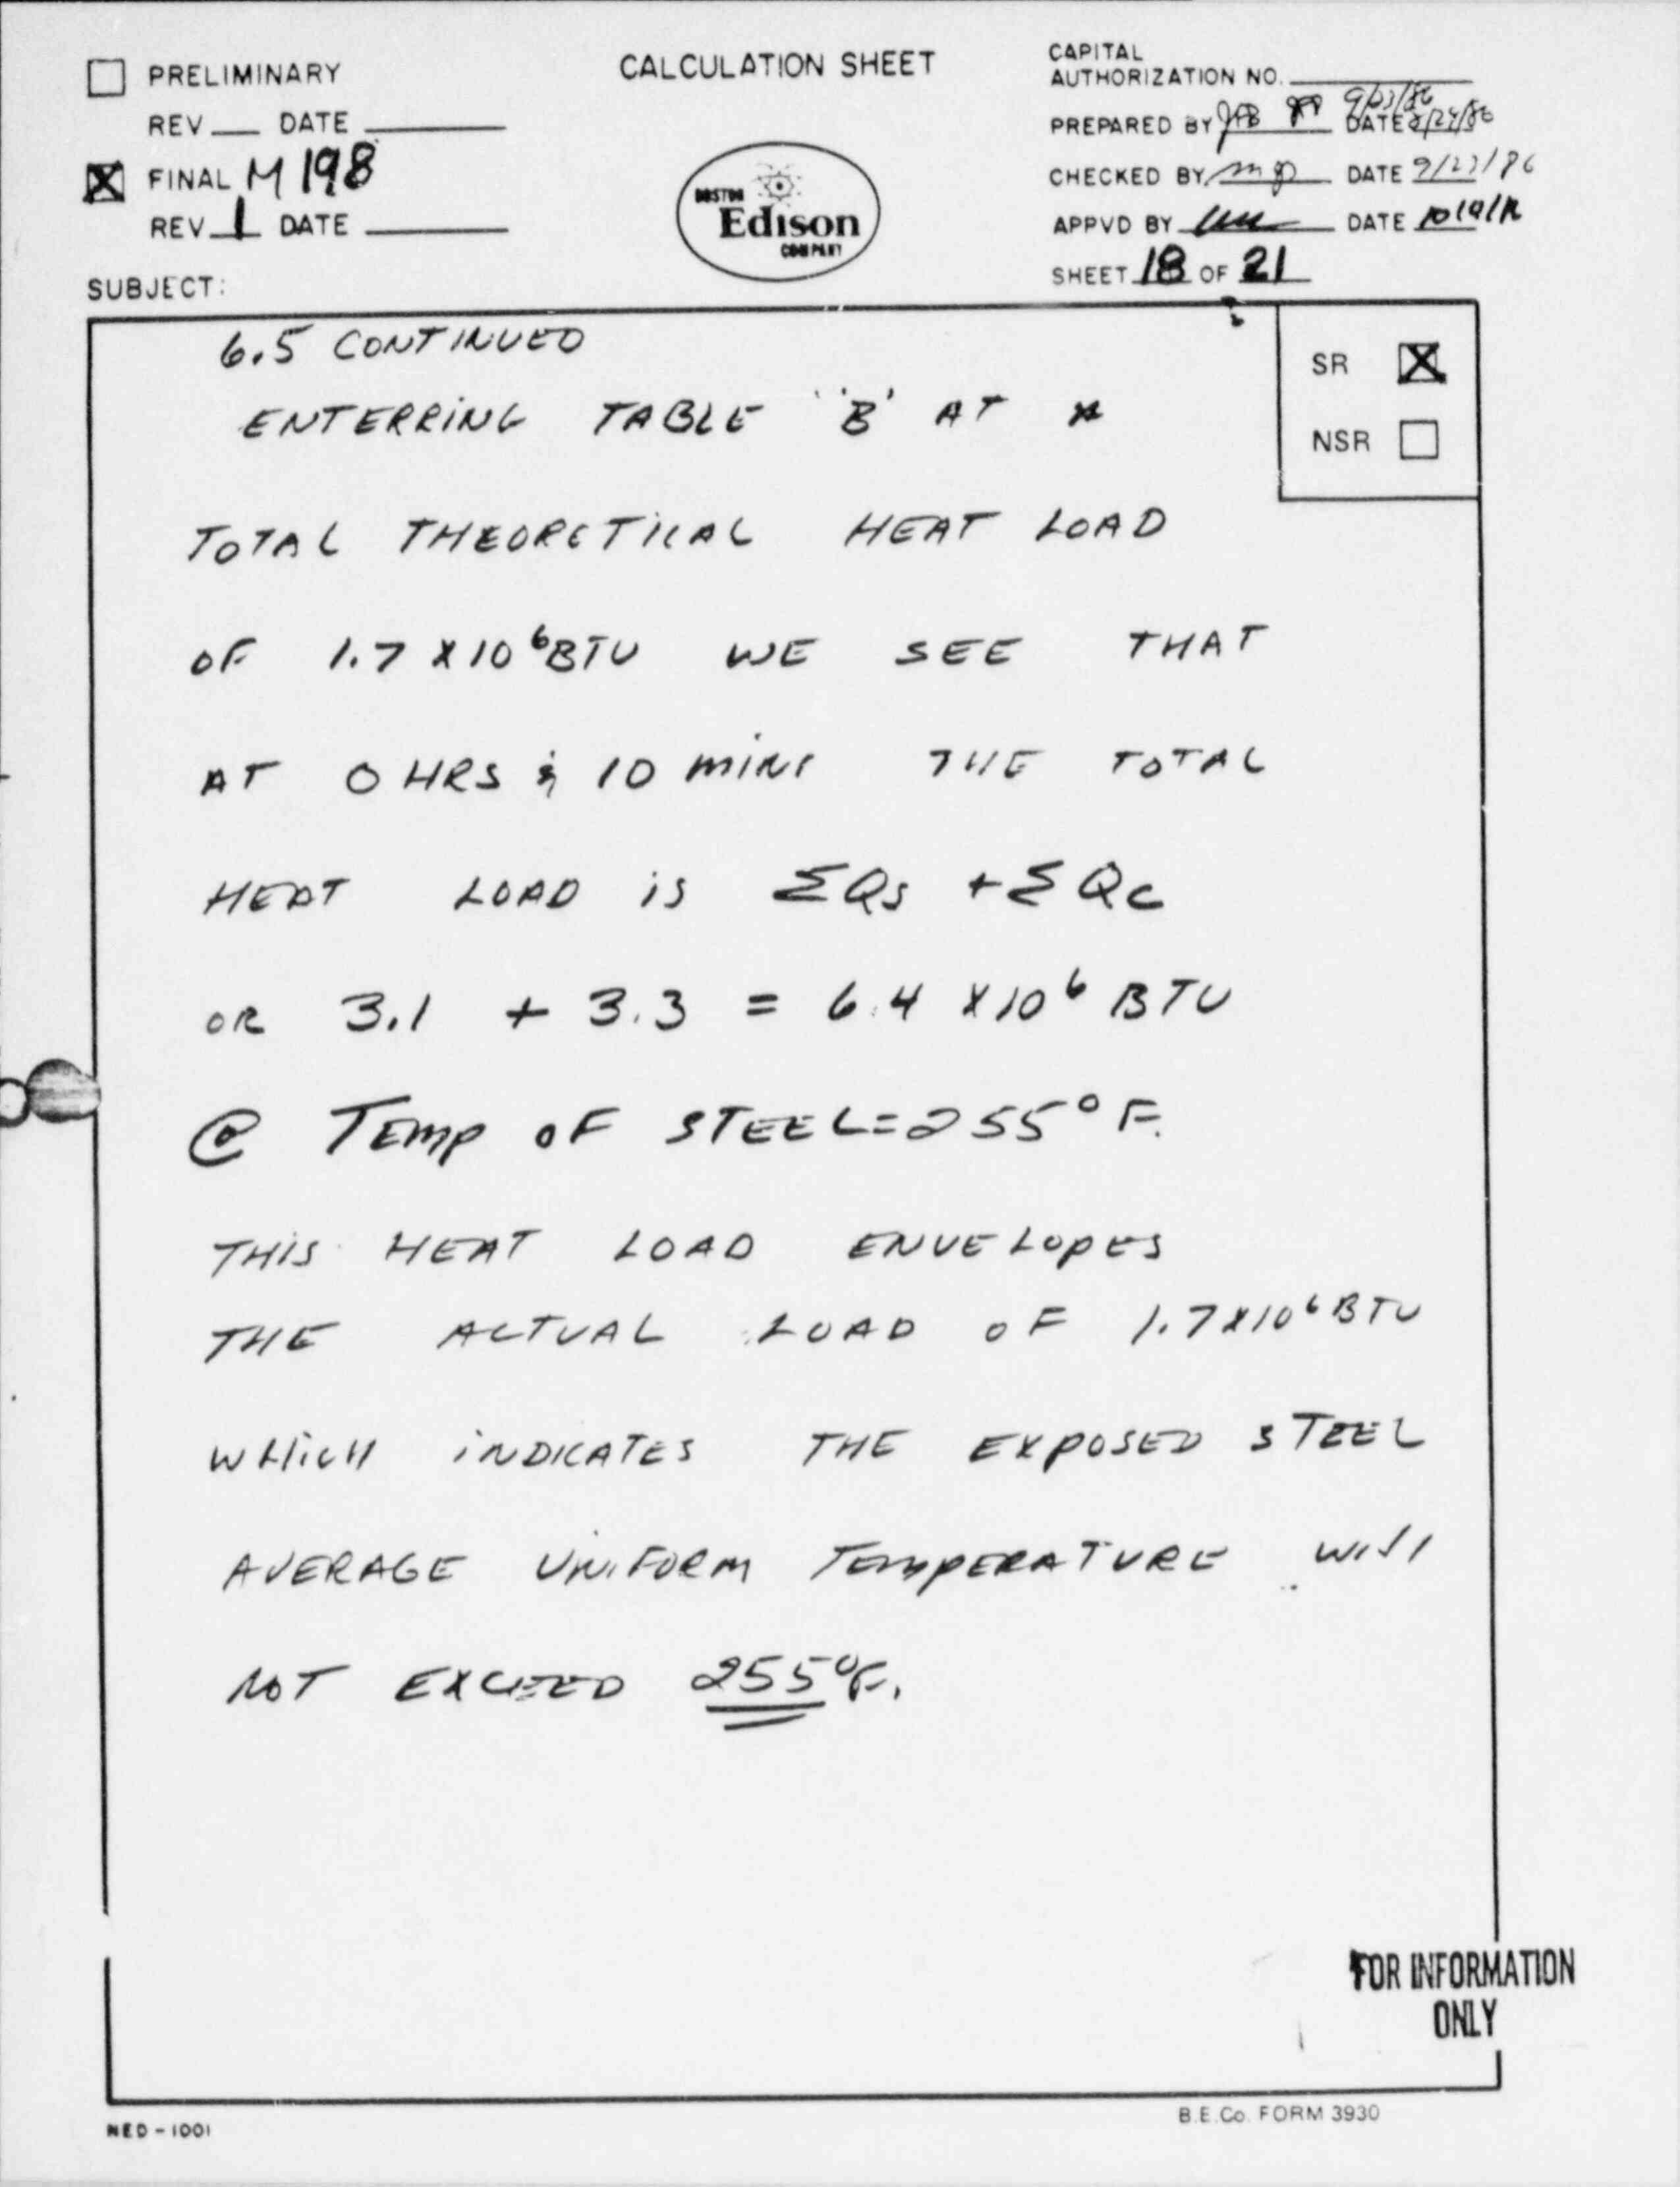 PRELIMINARY
REV DATE
FINAL M198
REV 1 DATE
SUBJECT:
CALCULATION SHEET
BOSTON
Edison
COMPANY
CAPITAL
AUTHORIZATION NO.
PREPARED BY DATE
CHECKED BY DATE
APPVD BY DATE
SHEET 18 OF 21
SR
NSR
6.5 CONTINUED
ENTERRING TABLE "B' AT
TOTAL THEORETICAL HEAT LOAD
OF 1.7 X 10⁶ BTU WE SEE THAT
AT 0 HRS & 10 MINS THE TOTAL
HEAT LOAD IS ΣQs + ΣQc
OR 3.1 + 3.3 = 6.4 X10⁶ BTU
@ TEMP OF STEEL=255°F.
THIS HEAT LOAD ENVELOPES
THE ACTUAL LOAD OF 1.7X10⁶ BTU
WHICH INDICATES THE EXPOSED STEEL
AVERAGE UNIFORM TEMPERATURE WILL
NOT EXCEED 255°F.
FOR INFORMATION
ONLY
NED-1001
B.E.Co. FORM 3930